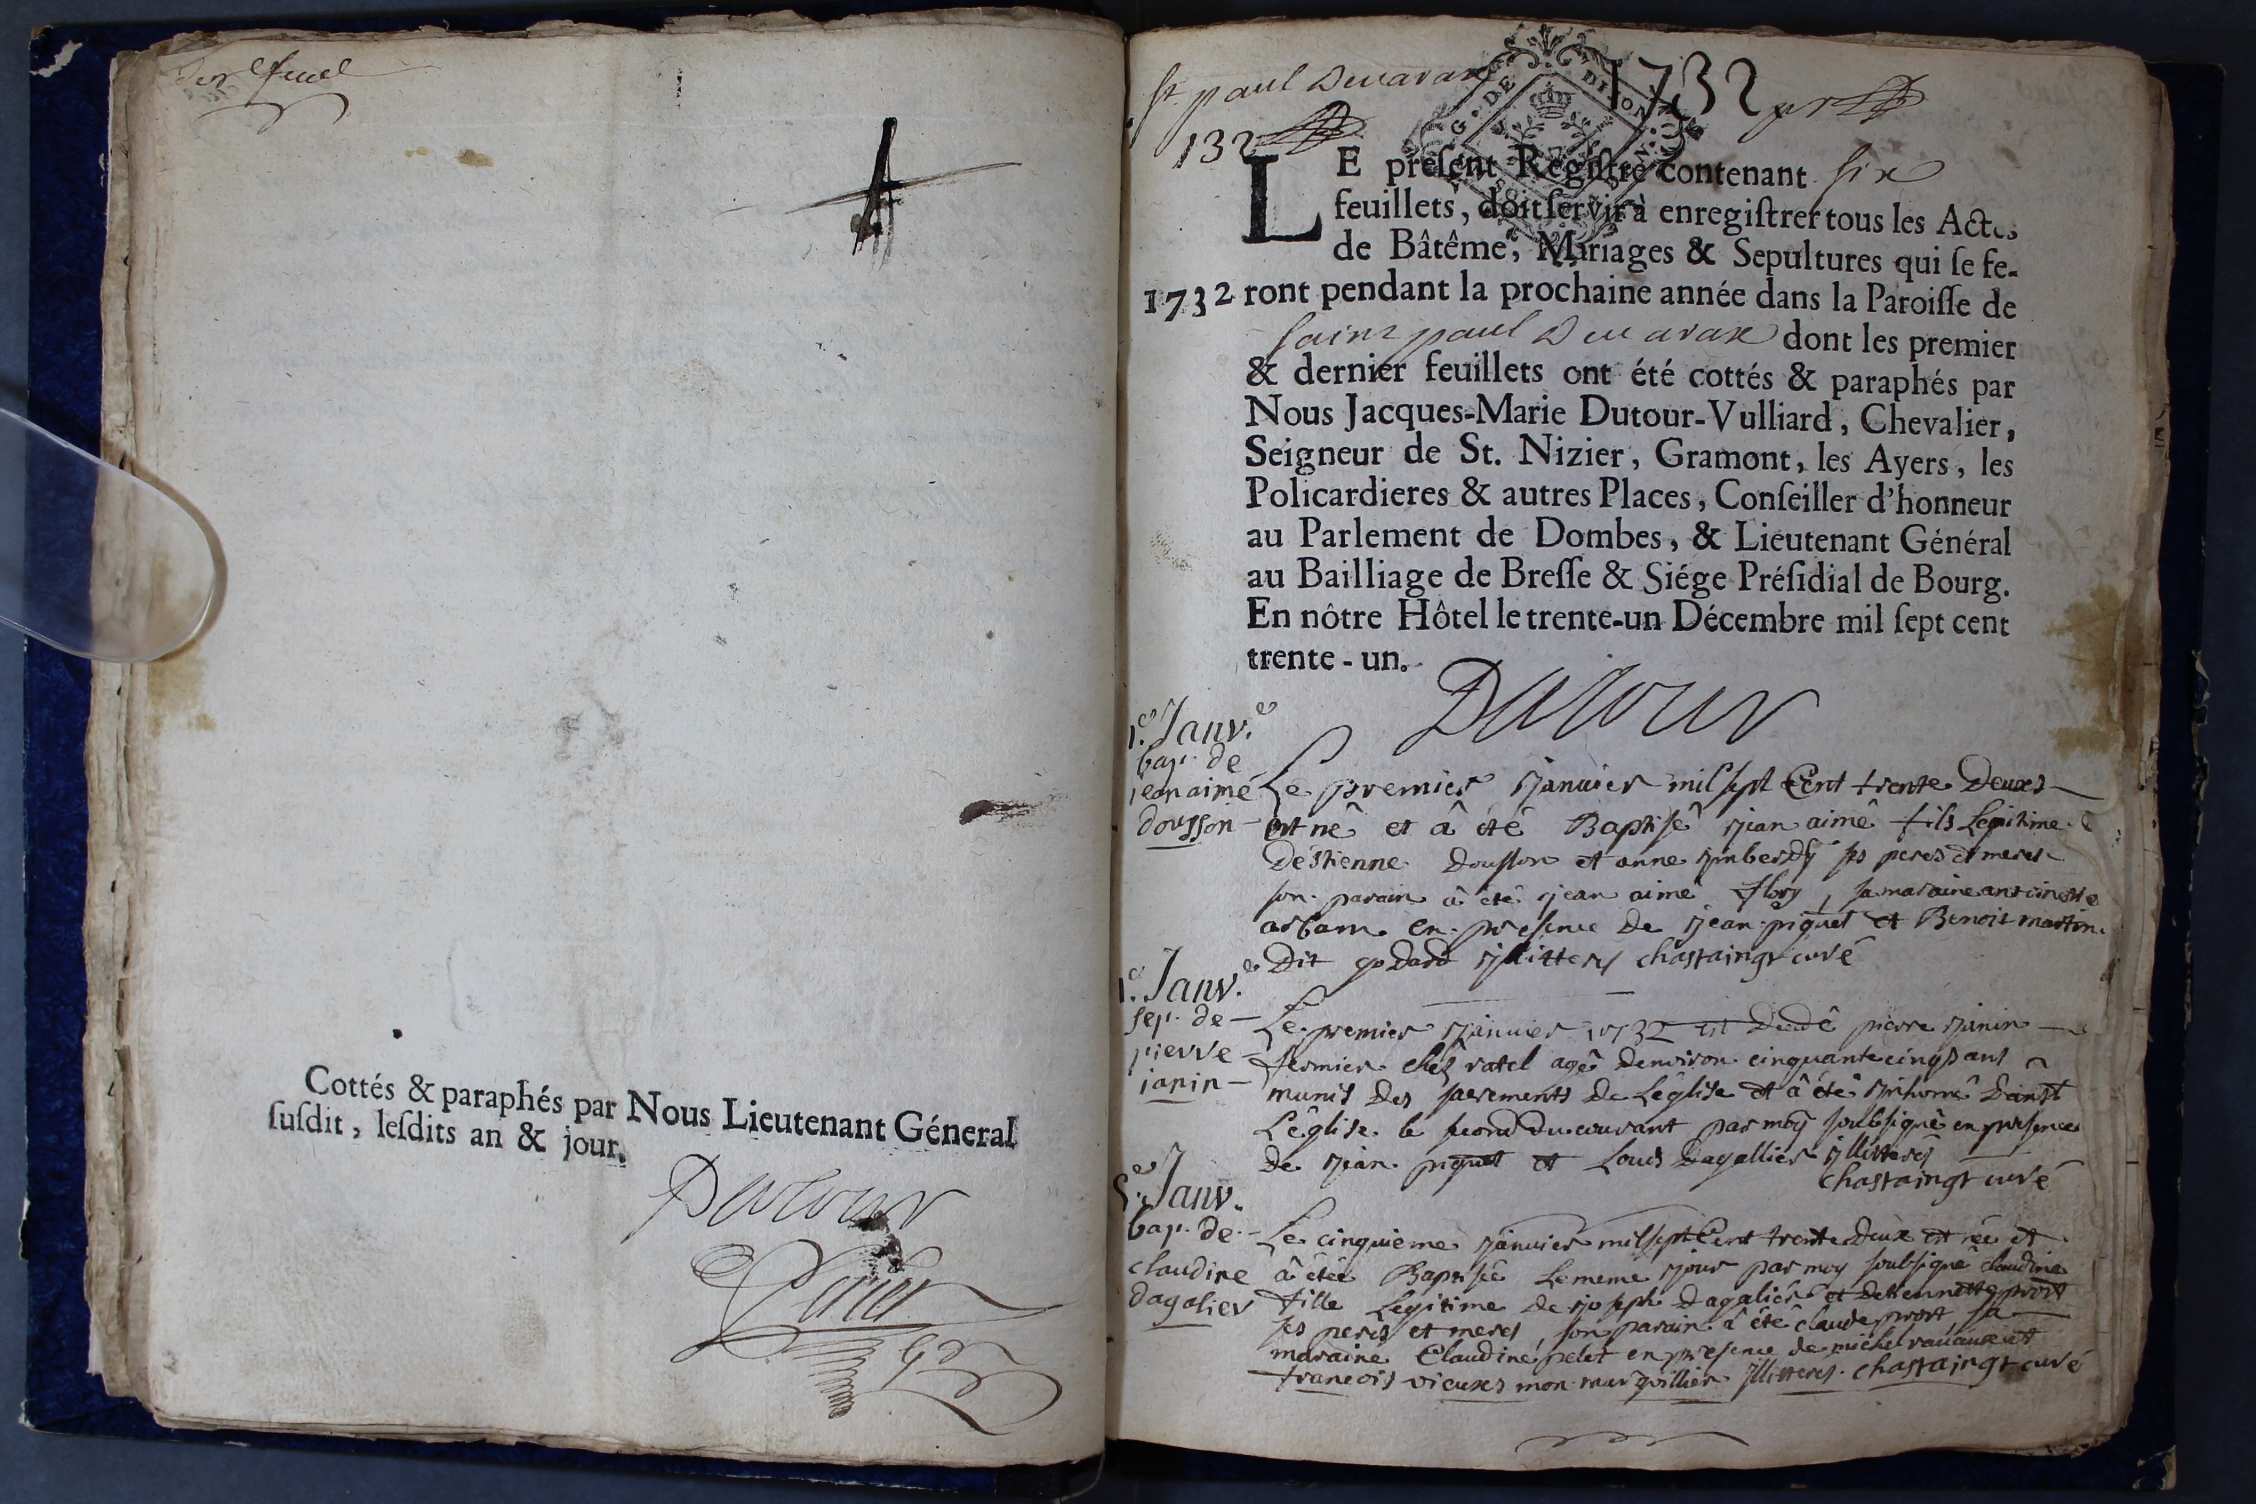 Cottés & paraphés par Nous Lieutenant Géneral
ſuſdit, leſdits an & jour.
Dutour
St paul Devarax
1732
132
LE preſent Regiſtre contenant six
feuillets, doit ſervir à enregiſtrer tous les Actes
de Bâtême, Mariages & Sepultures qui ſe fe-
1732 ront pendant la prochaine année dans la Paroiſſe de
Saint paul Devarax dont les premier
& dernier feuillets ont été cottés & paraphés par
Nous Jacques-Marie Dutour-Vulliard, Chevalier,
Seigneur de St. Nizier, Gramont, les Ayers, les
Policardieres & autres Places, Conſeiller d'honneur
au Parlement de Dombes, & Lieutenant Général
au Bailliage de Breſſe & Siége Préſidial de Bourg.
En nôtre Hôtel le trente-un Décembre mil ſept cent
trente-un.
Dutour
1.er Janv.e
bap. de
jean aimé
dousson
Le premier janvier mil sept Cent trente Deuxs
est né et â été Baptisê jean aimê fils Legitime
D'estienne Dousson et anne jmberdÿ ses peres et meres
son parain â été jean aimé flory, sa maraine antoinette
arbam en presence De jean piquet et Benoit martin
Dit godard jllitteres chastaingt curé
1.er Janv.e
sep. de
pierre
janin
Le premier janvier 1732 est Decedê pierre janin
fermier chéz ratel agê Denviron cinquante cinqs ans
munis Des sacrements De L'église et â été jnhumê Dans
L'église le second Du courant par moÿ soubsignê en presence
De jean piquet et Louis Dagallier jllitteres
chastaingt curé
5.e Janv.
bap. de
claudine
dagalier
Le cinquieme janvier mil sept Cent trente Deux est née et
â étéé Baptiséé Le meme jour par moy soubsignê Claudine
fille Legitime De joseph Dagalier et D'etiennette prost
ses peres et meres, son parain â été claude prost, sa
maraine Claudine pelet en presence de michel ravaux et
francois vieuxes mon marguillier jllitteres. chastaingt curé